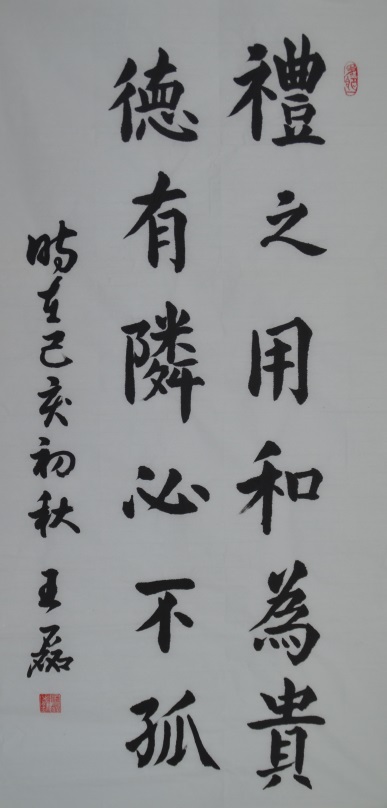 禮之用和為貴
德有隣必不孤
時在己亥初秋 王磊